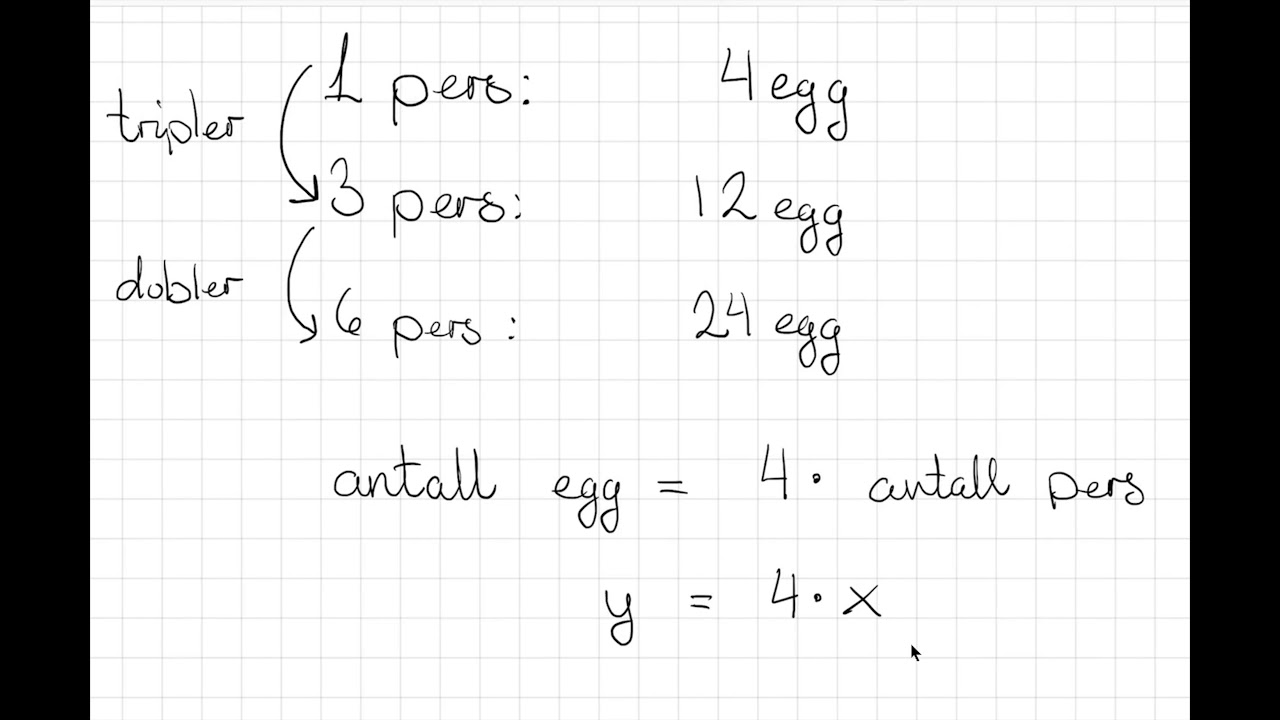 1 pers: 4 egg
tripler
3 pers: 12 egg
dobler
6 pers : 24 egg
antall egg = 4 · antall pers
y = 4 · x